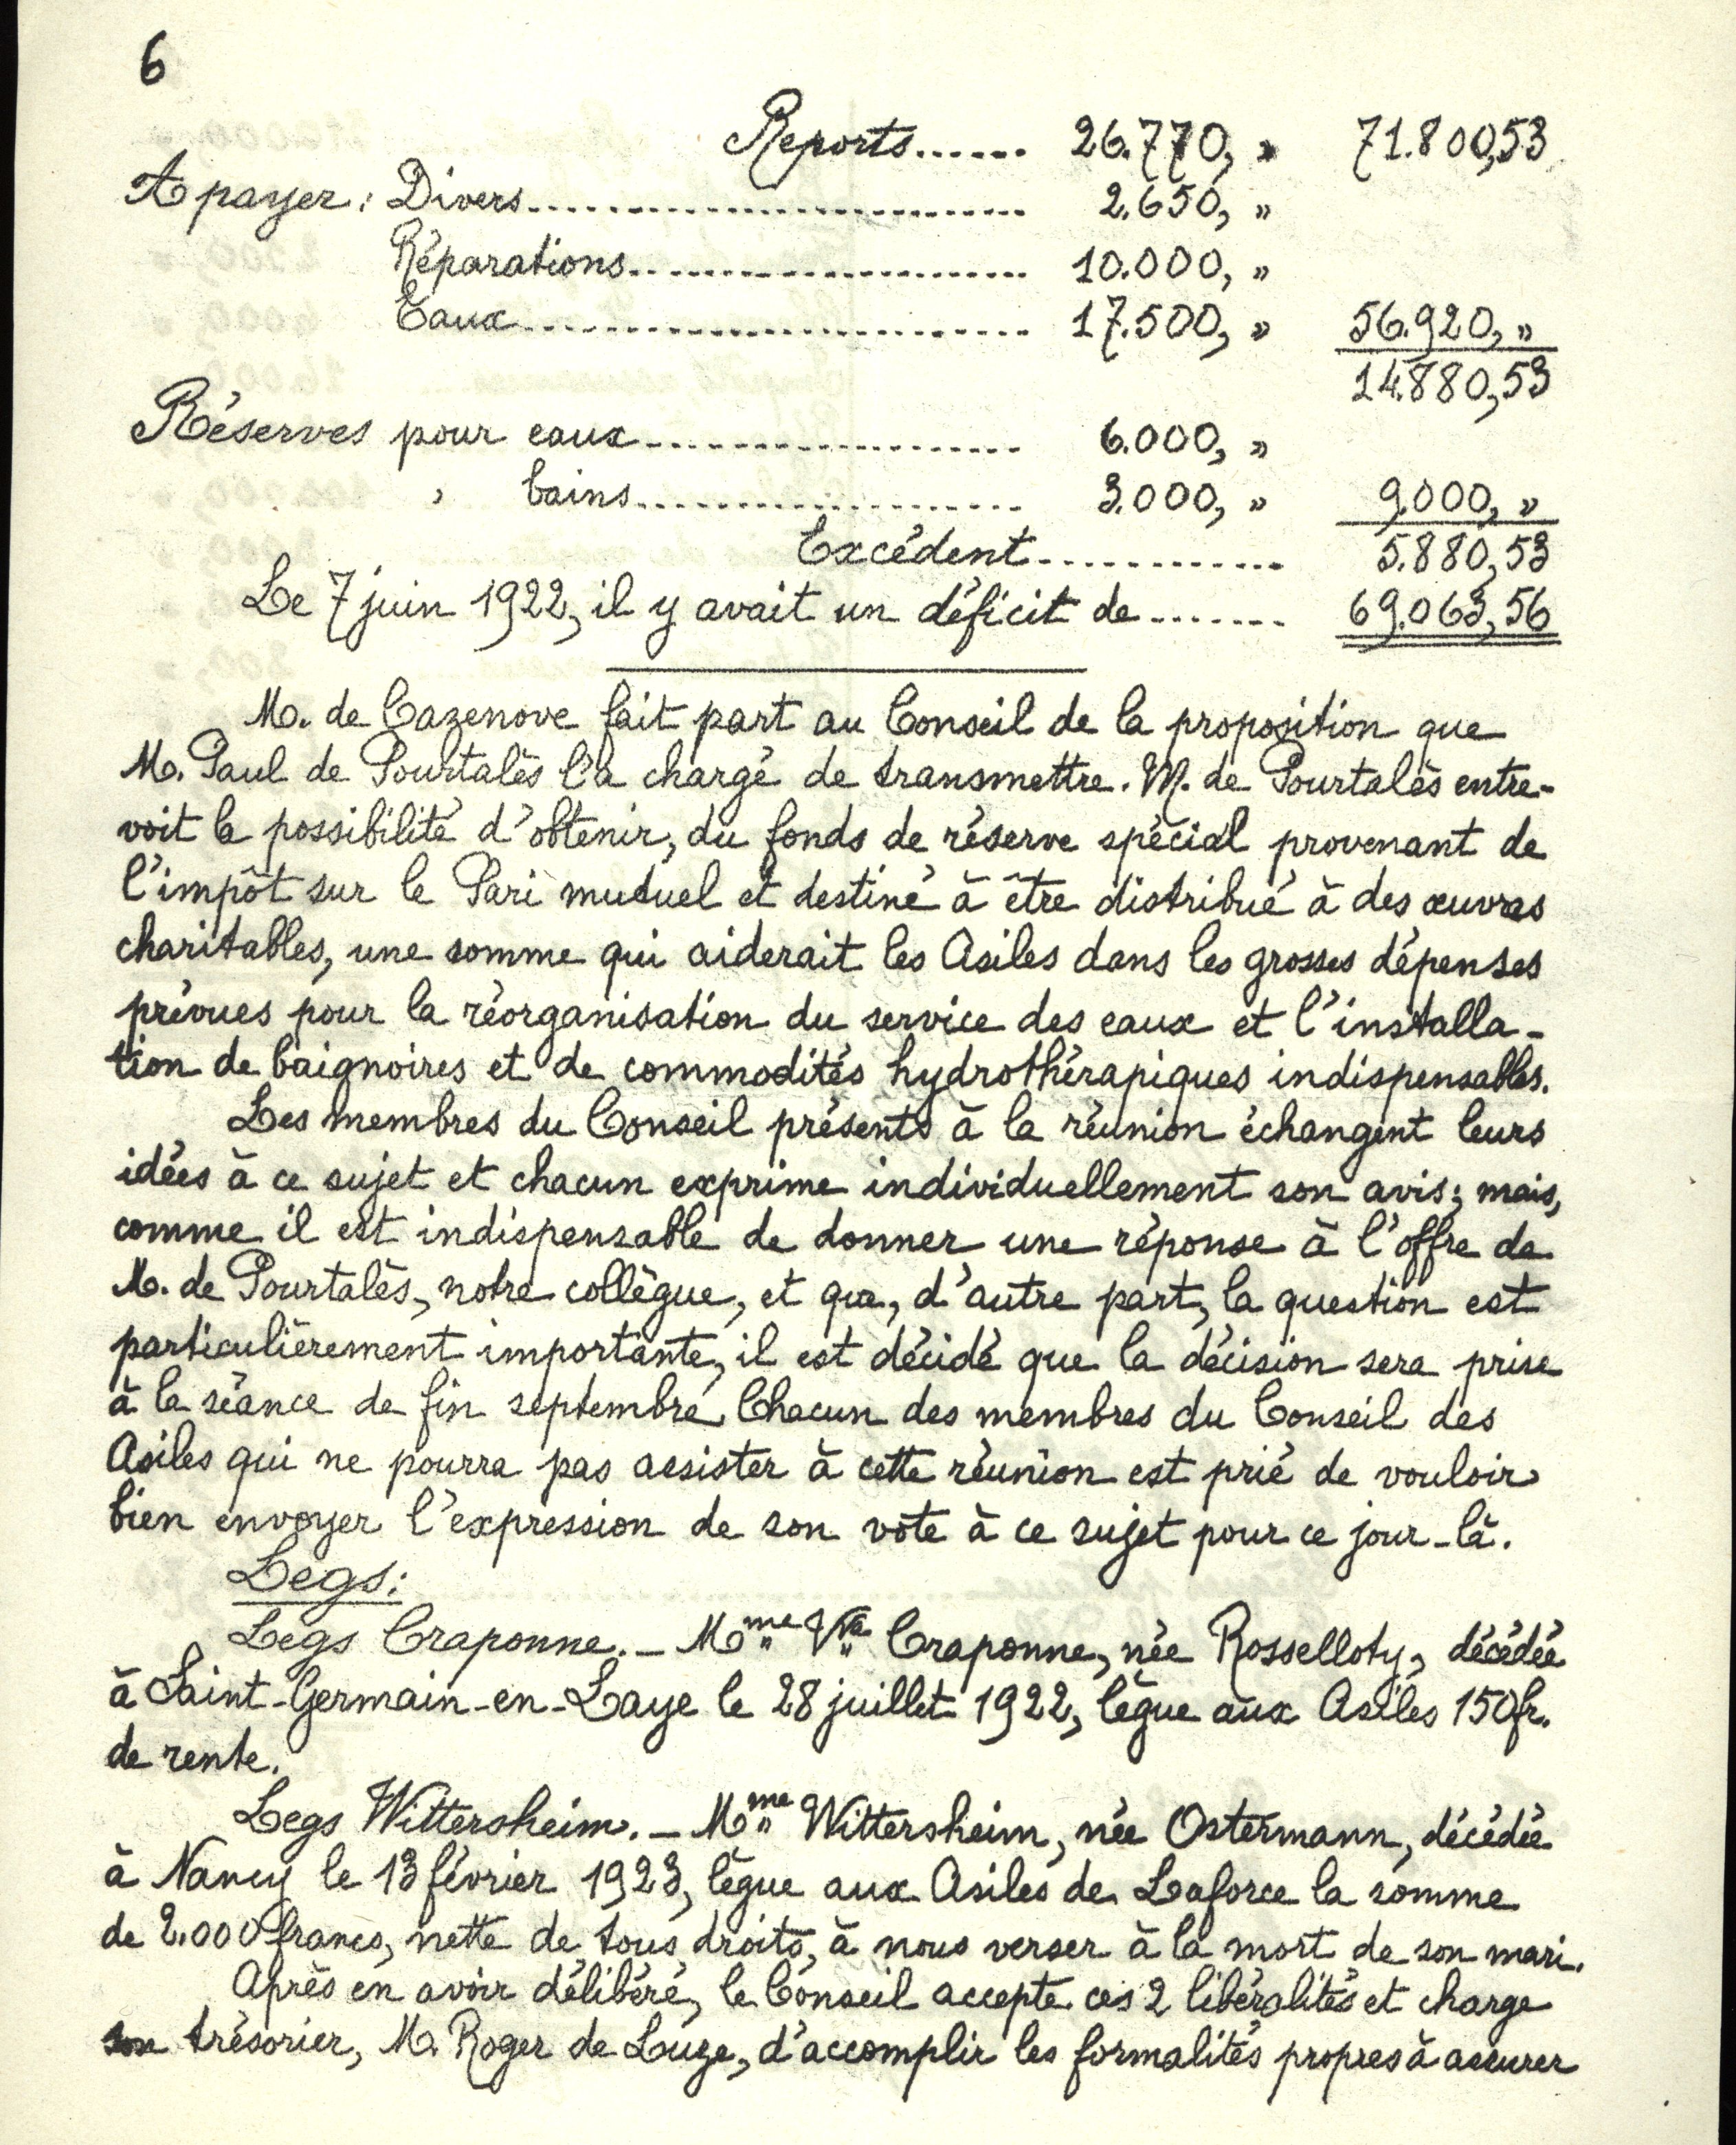 6
Reports...... 26.770, » 71.800,53
A payer : Divers............................ 2.650, »
Réparations...................... 10.000, »
Eaux............................ 17.500, » 56.920, »
14.880,53
Réserves pour eaux.................... 6.000, »
, bains.................... 3.000, » 9.000, »
Excédent............. 5.880,53
Le 7 juin 1922, il y avait un déficit de ....... 69.063,56
M. de Cazenove fait part au Conseil de la proposition que
M. Paul de Pourtalès l'a chargé de transmettre. M. de Pourtalès entre-
voit la possibilité d'obtenir, du fonds de réserve spécial provenant de
l'impôt sur le Pari mutuel et destiné à être distribué à des œuvres
charitables, une somme qui aiderait les Asiles dans les grosses dépenses
prévues pour la réorganisation du service des eaux et l'installa-
tion de baignoires et de commodités hydrothérapiques indispensables.
Les membres du Conseil présents à la réunion échangent leurs
idées à ce sujet et chacun exprime individuellement son avis; mais,
comme il est indispensable de donner une réponse à l'offre de
M. de Pourtalès, notre collègue, et que, d'autre part, la question est
particulièrement importante, il est décidé que la décision sera prise
à la séance de fin septembre. Chacun des membres du Conseil des
Asiles qui ne pourra pas assister à cette réunion est prié de vouloir
bien envoyer l'expression de son vote à ce sujet pour ce jour-là.
Legs:
Legs Craponne. - Mme Vve Craponne, née Rosselloty, décédée
à Saint-Germain-en-Laye le 28 juillet 1922, lègue aux Asiles 150 fr.
de rente.
Legs Wittersheim. - Mme Wittersheim, née Ostermann, décédée
à Nancy le 13 février 1923, lègue aux Asiles de Laforce la somme
de 2.000 francs, nette de tous droits, à nous verser à la mort de son mari.
Après en avoir délibéré, le Conseil accepte ces 2 libéralités et charge
son trésorier, M. Roger de Luze, d'accomplir les formalités propres à assurer